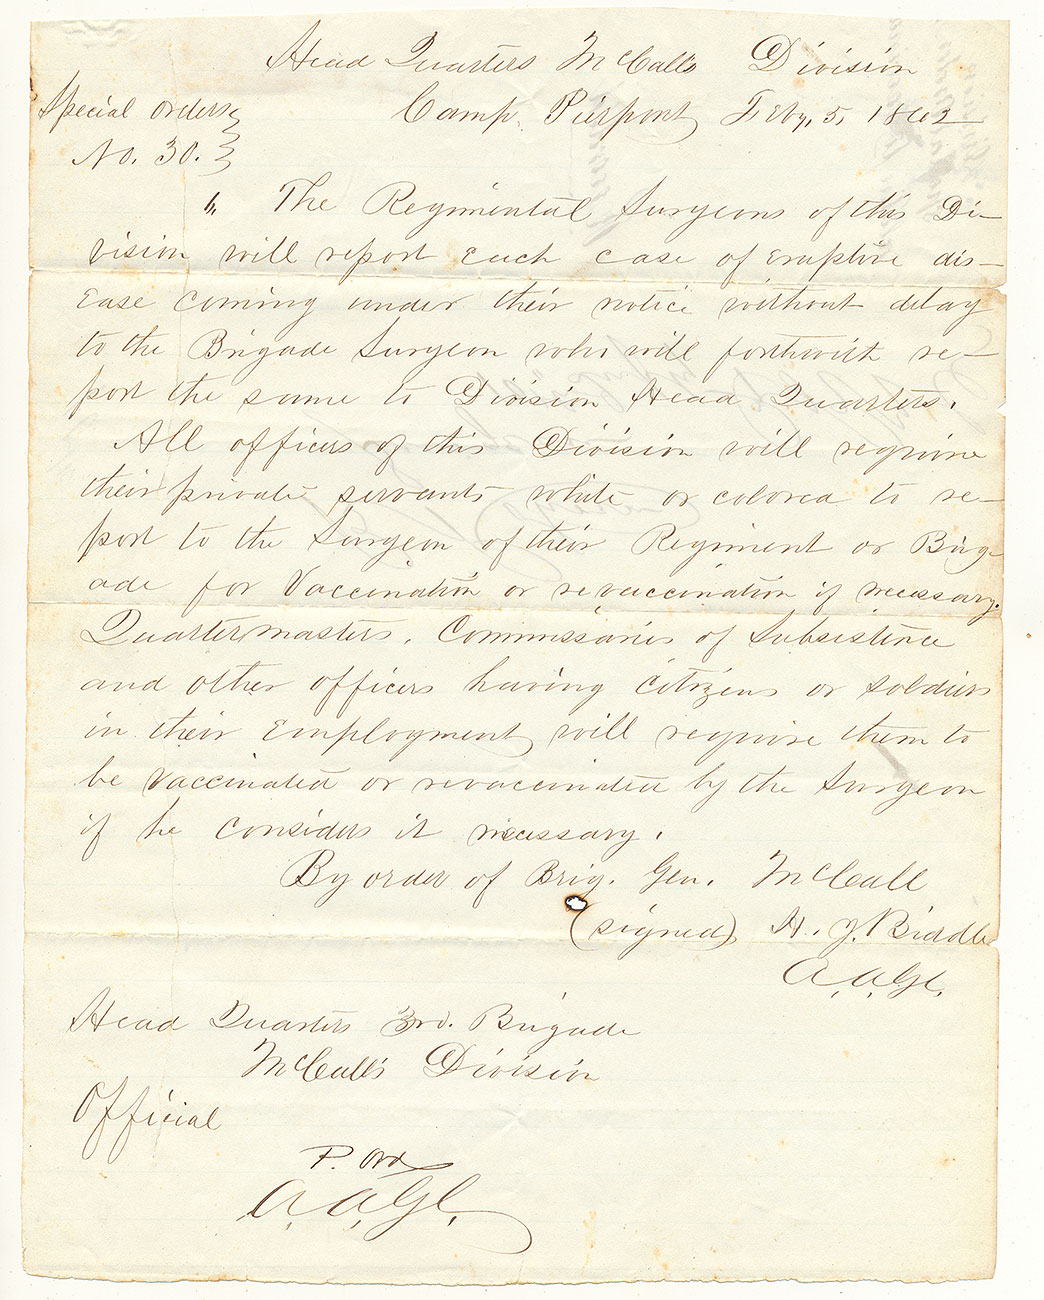 Head Quarters McCall's Division
Special Orders
No. 30.
Camp Pierpont, Feby, 5, 1862
The Regimental Surgeons of this Di-
vision will report each case of eruptive dis-
ease coming under their notice without delay
to the Brigade Surgeon who will forthwith re-
port the same to Division Head Quarters.
All officers of this Division will require
their private servants white or colored to re-
port to the Surgeon of their Regiment or Brig-
ade for Vaccination or revaccination if necessary.
Quartermasters, Commissaries of Subsistence
and other officers having citizens or soldiers
in their employment, will require them to
be vaccinated or revaccinated by the Surgeon
if he considers it necessary.
By order of Brig. Gen. McCall
(signed) H. J. Biddle
A. A. G.
Head Quarters 3rd. Brigade
McCall's Division
Official
P. Ord
A. A. G.